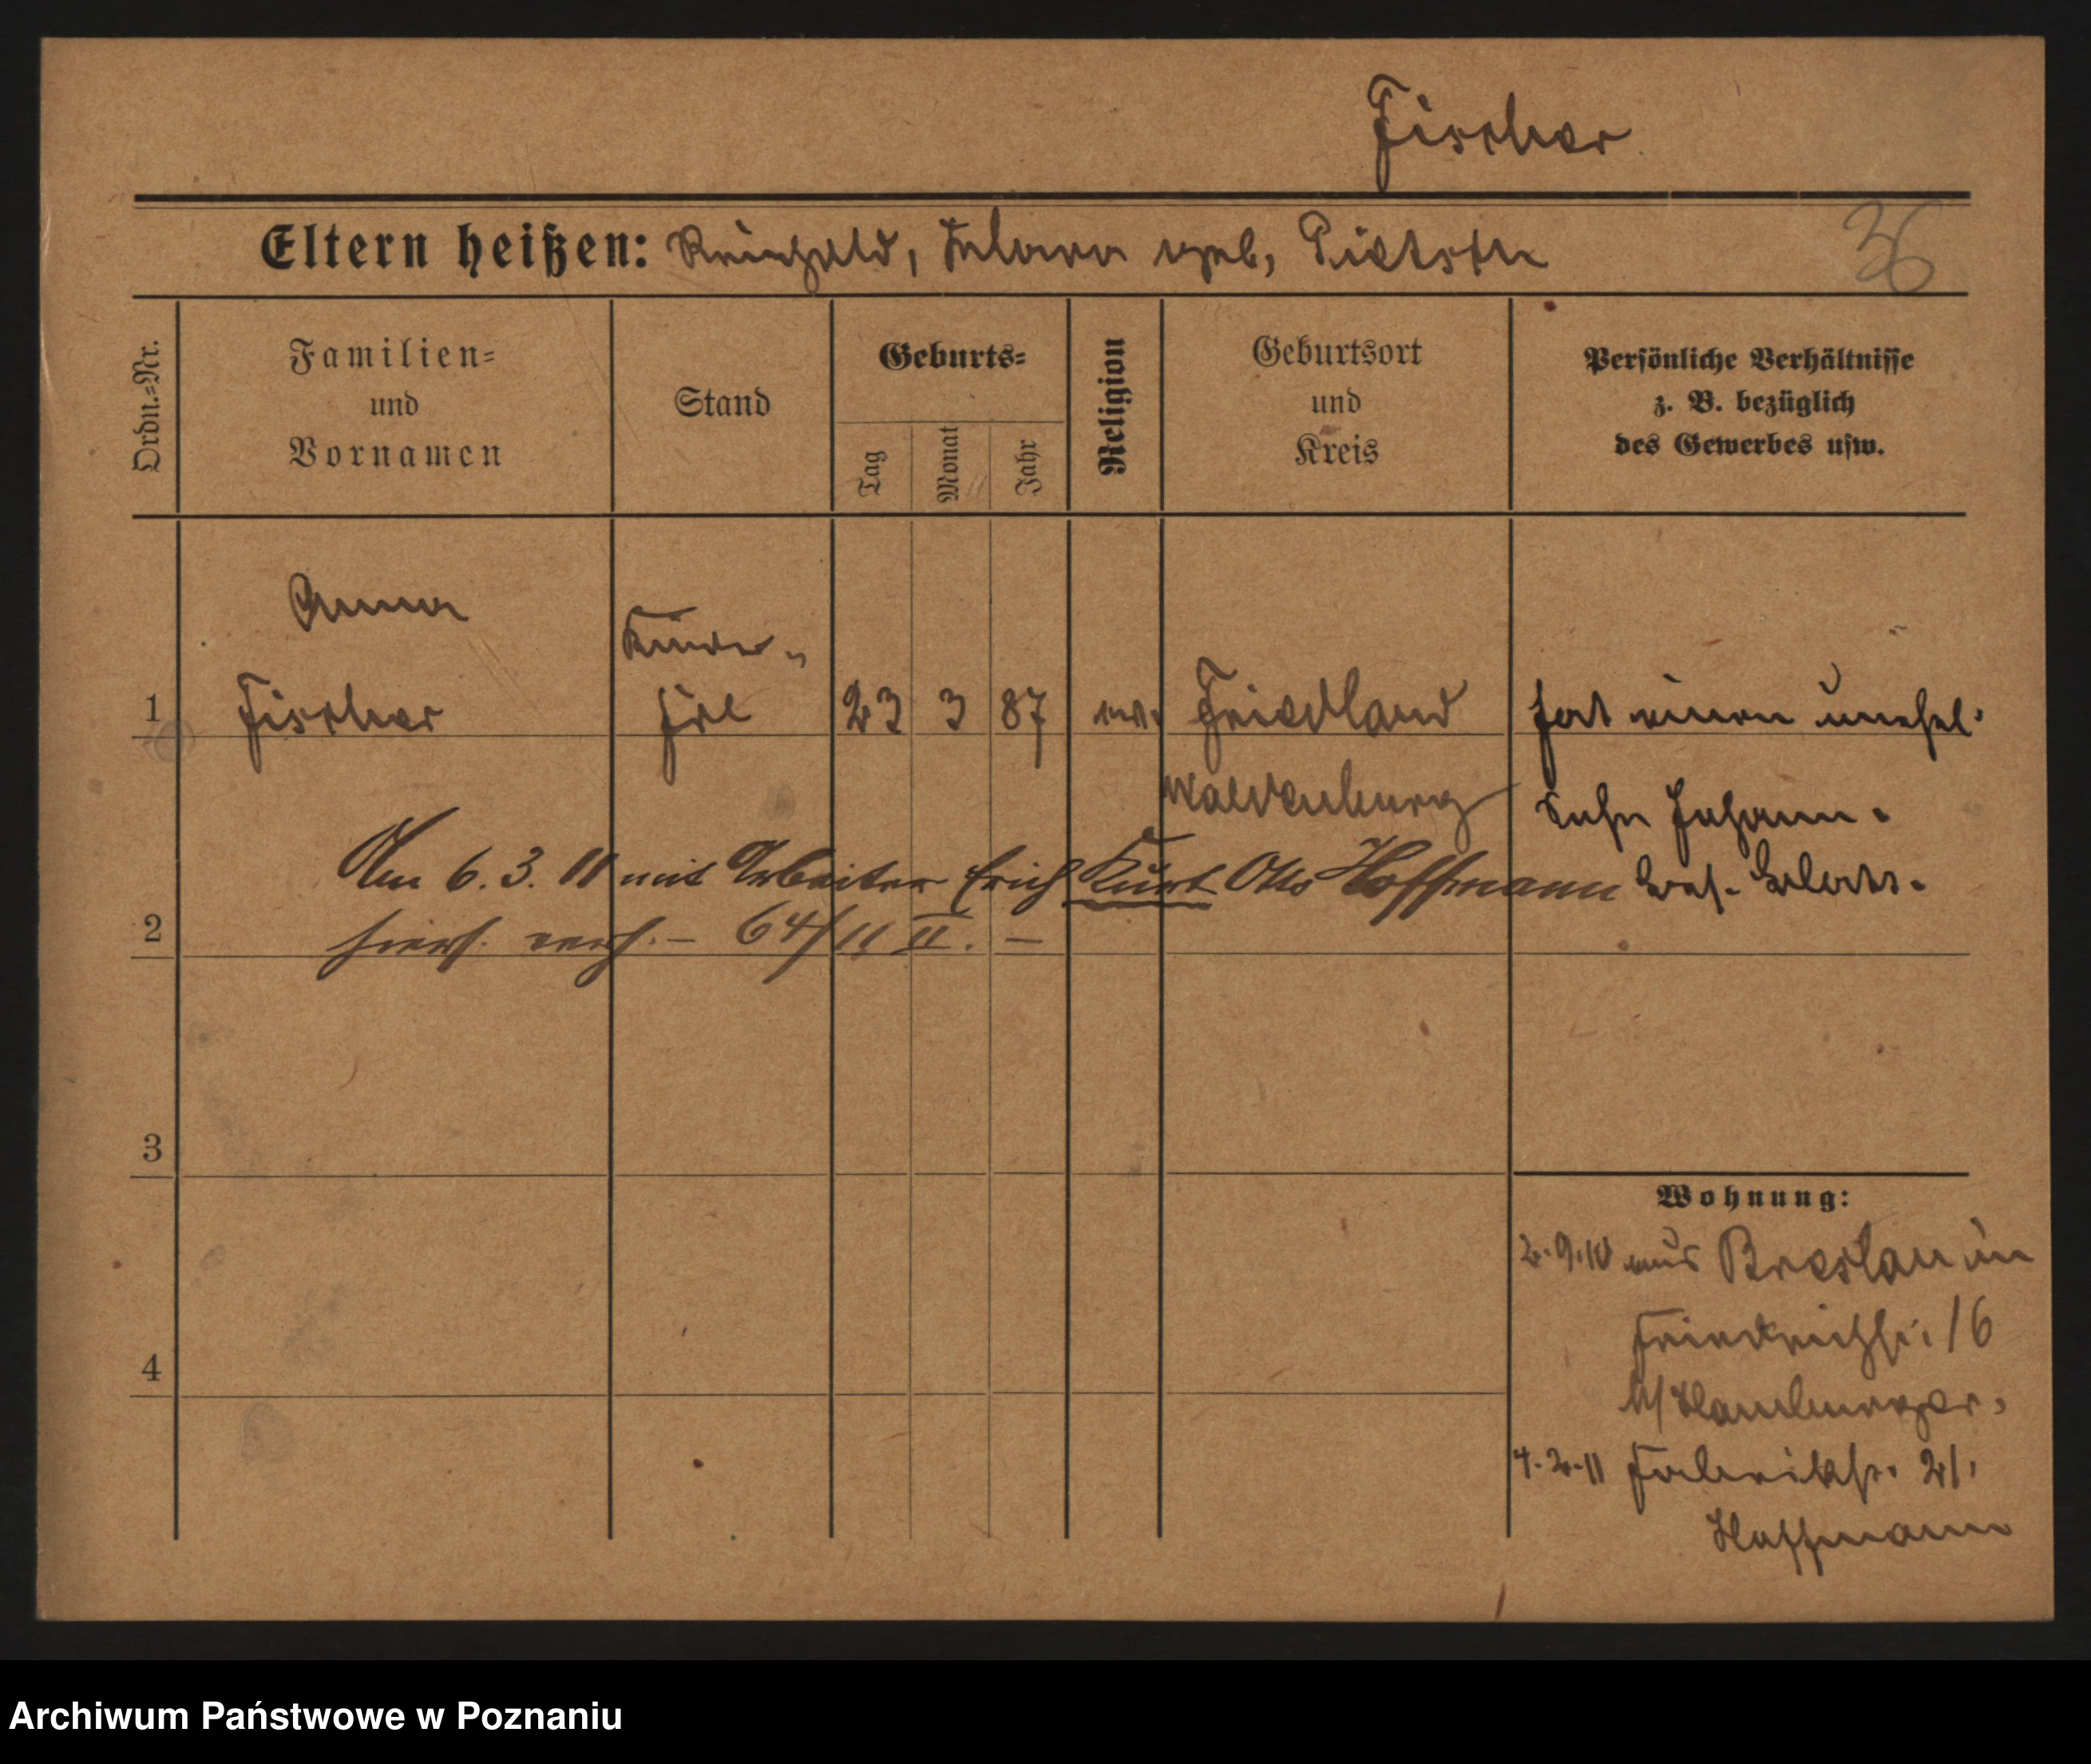 Fischer
Eltern heißen: Reinhold, Klara geb. Pietsch
36
Ordn.=Nr.
Familien=
und
Vornamen
Stand
Geburts=
Tag
Monat
Jahr
Religion
Geburtsort
und
Kreis
Persönliche Verhältnisse
z. B. bezüglich
des Gewerbes usw.
Anna
Kinder-
1 Fischer frl 23 3 87 ev. Friedland hat einen unehel.
Waldenburg
Sohn Johann.
Am 6. 3. 11 mit Arbeiter Erich Kurt Otto Hoffmann
2 hiers. verh. – 64/11 II. –
3
4
Wohnung:
2.9.10 aus Breslau in
Friedrichstr. 16
b/ Hamburger.
4.2.11 Fabrikstr. 21.
Hoffmann
Archiwum Państwowe w Poznaniu